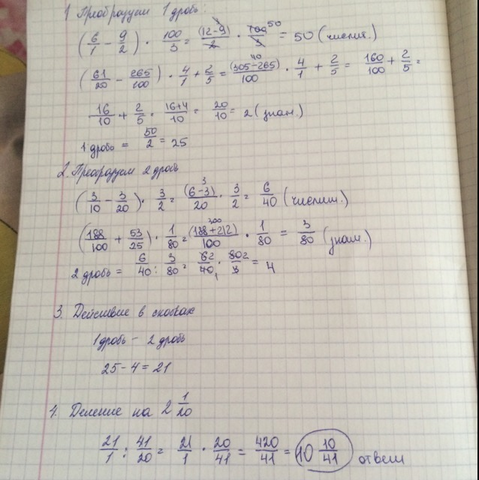 1. Преобразуем 1 дробь:
(6/1 - 9/2) · 100/3 = (12-9)/2 · 100 50/3 = 50 (числит.)
(61/20 - 265/100) · 4/1 + 2/5 = (305-265) 40/100 · 4/1 + 2/5 = 160/100 + 2/5 =
16/10 + 2/5 = 16+4/10 = 20/10 = 2 (знам.)
1 дробь = 50/2 = 25
2. Преобразуем 2 дробь
(3/10 - 3/20) · 3/2 = (6-3) 3/20 · 3/2 = 6/40 (числит.)
(188/100 + 53/25) · 1/80 = (188+212) 400/100 · 1/80 = 3/80 (знам.)
2 дробь = 6/40 : 3/80 = 6 2/40 1 · 80 2/3 = 4
3. Действие в скобках
1 дробь - 2 дробь
25-4=21
4. Деление на 2 1/20
21/1 : 41/20 = 21/1 · 20/41 = 420/41 = 10 10/41 ответ